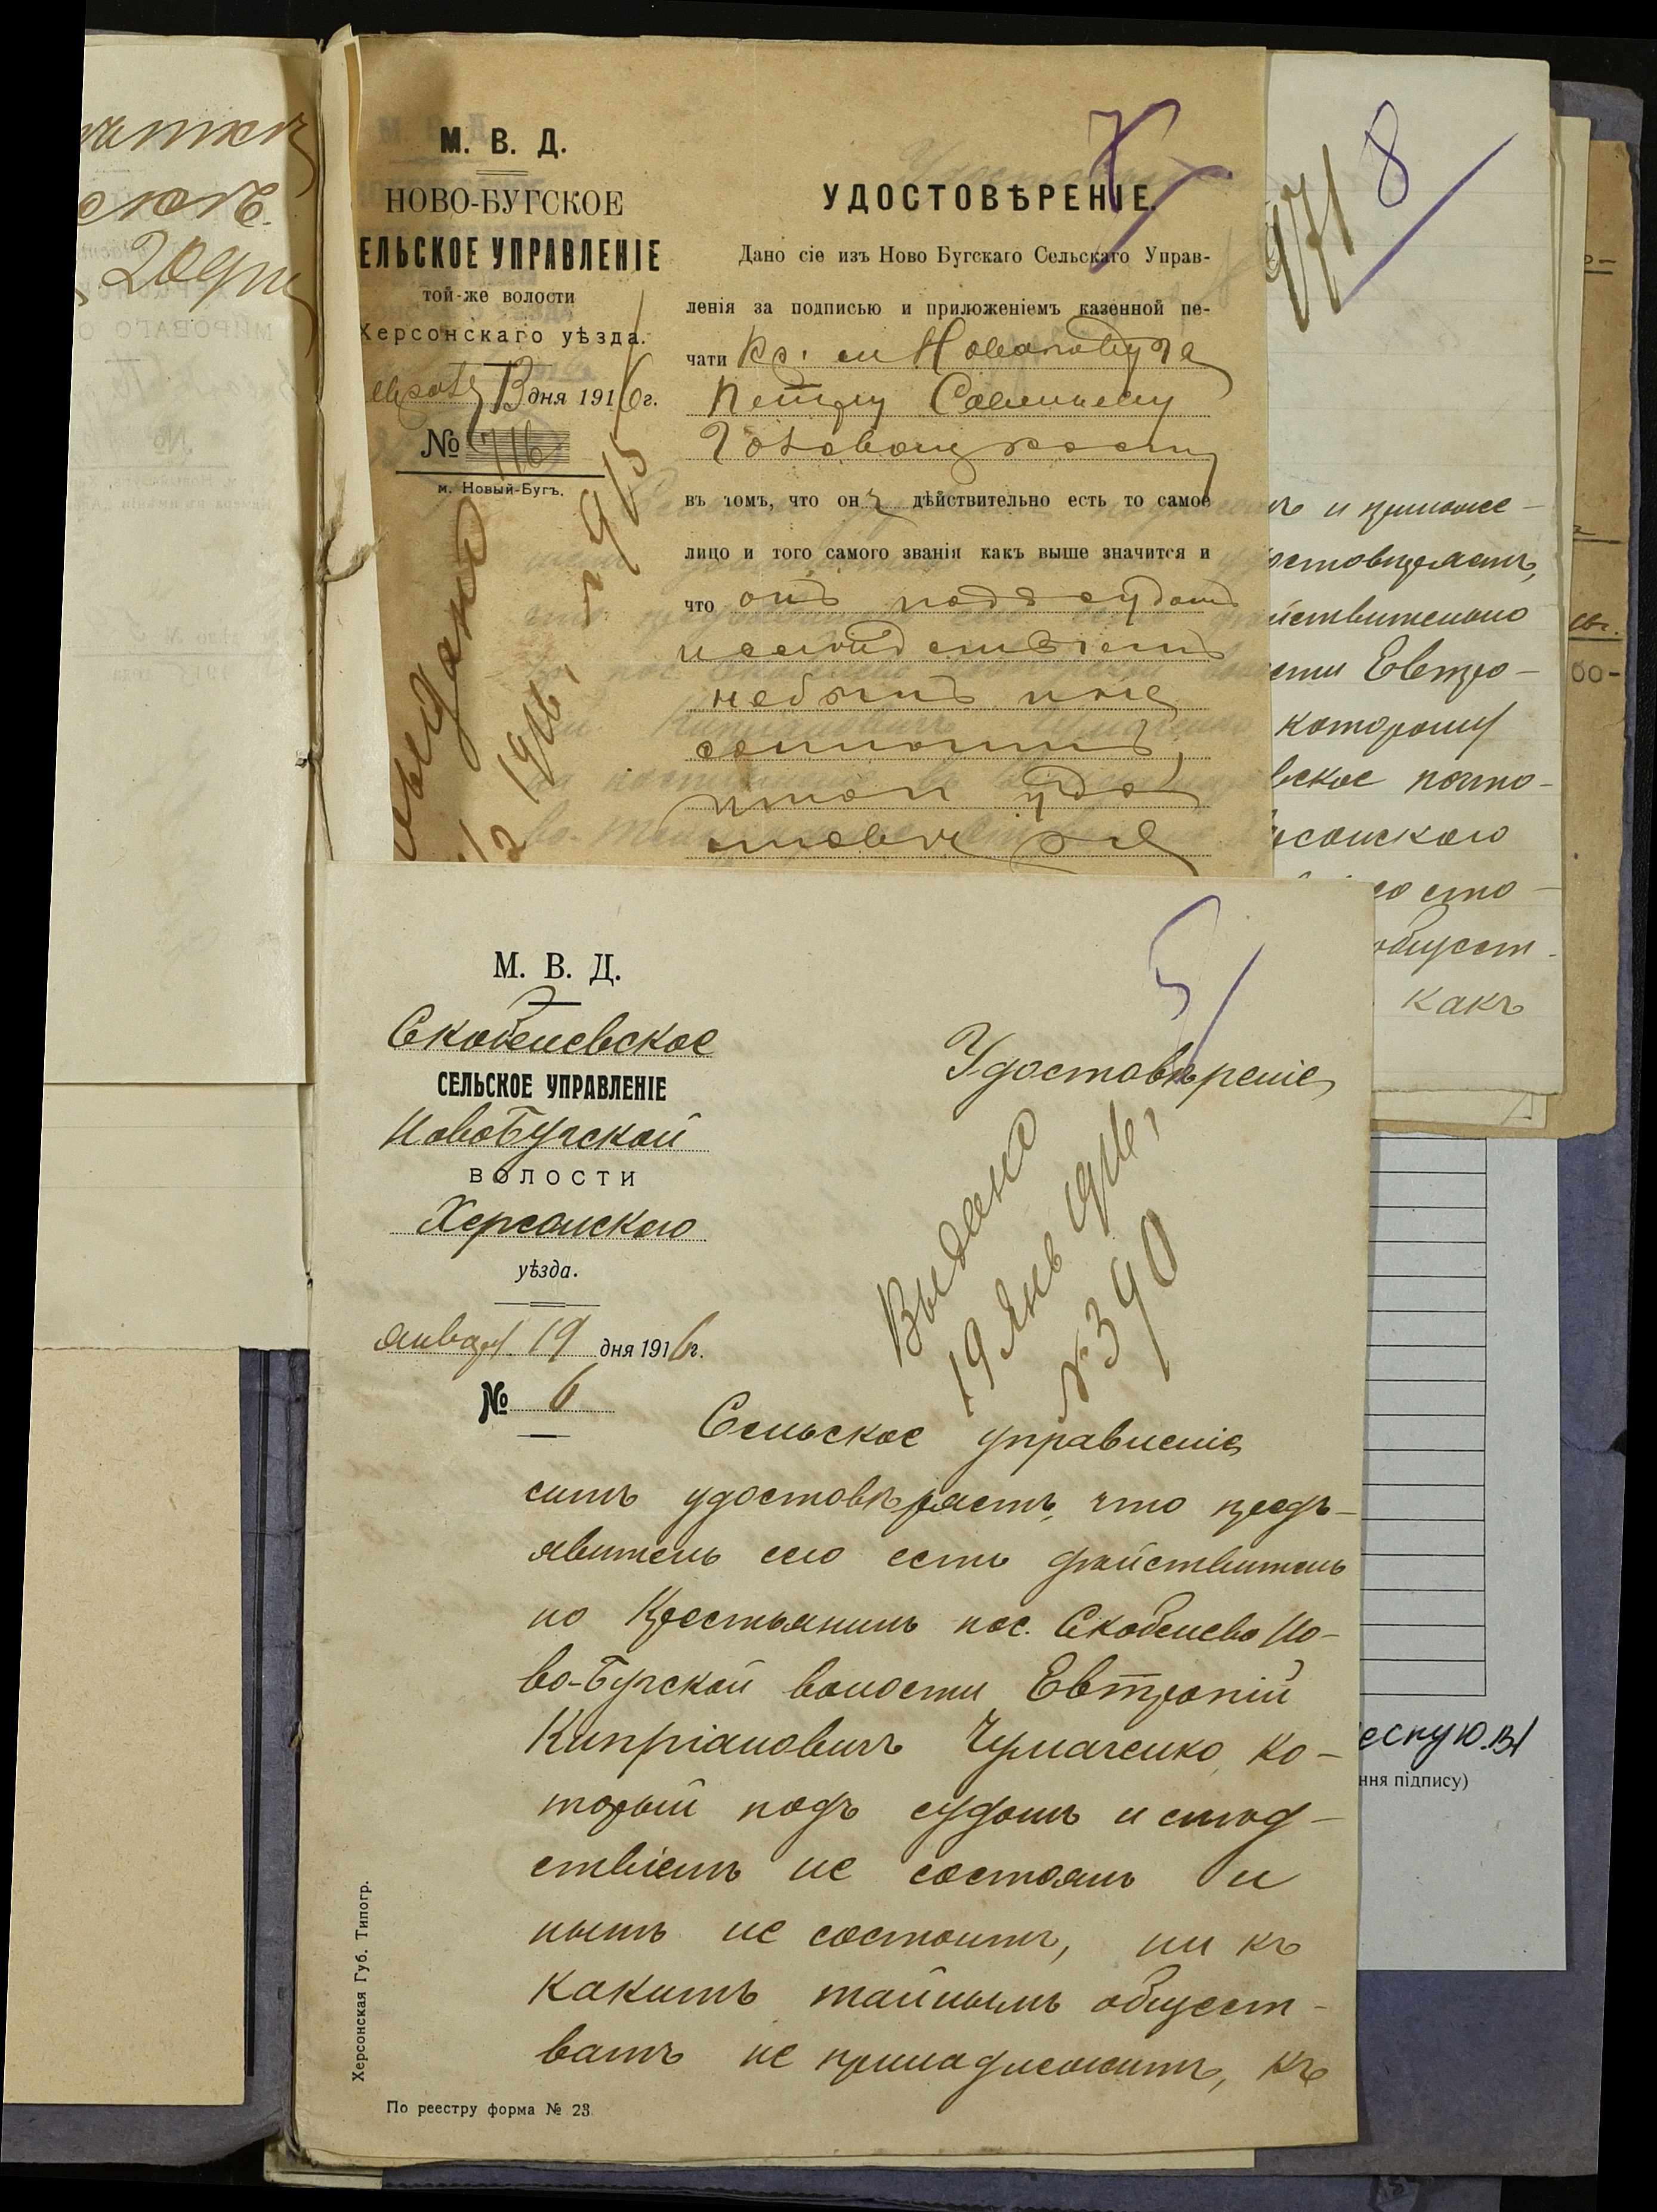 20
М. В. Д.
НОВО-БУГСКОЕ
ЕЛЬСКОЕ УПРАВЛЕНІЕ
той-же волости
Херсонскаго уѣзда.
13 дня 1916 г.
№ 716
м. Новый-Бугъ.
1916 г
УДОСТОВѢРЕНІЕ.
Дано сіе изъ Ново Бугскаго Сельскаго Управ-
ленія за подписью и приложеніемъ казенной пе-
чати Кр. м Новаго Буга
Петру
въ томъ, что онъ дѣйствительно есть то самое
лицо и того самого званія какъ выше значится и
что онъ подъ судомъ
и слѣдствіемъ
небылъ и не
состоитъ,
971
8
ъ и приложе-
остовѣряетъ,
йствительно
сти Евтро-
которому
вское почто-
рсонского
со сто-
общест-
какъ
М. В. Д.
Скобелевское
СЕЛЬСКОЕ УПРАВЛЕНІЕ
НовоБугской
ВОЛОСТИ
Херсонского
уѣзда.
января 19 дня 1916 г.
№ 6
5
Удостовѣреніе
Выдано
19 Янв 1916 г
№ 390
Сельское управленіе
симъ удостовѣряетъ, что предъ-
явитель сего есть дѣйствитель
но Крестьянинъ пос. Скобелево Но-
во-Бугской волости Евтропій
Кипріановичъ Чумаченко, ко-
торый подъ судомъ и слѣд-
ствіемъ не состоялъ и
нынѣ не состоитъ, ни къ
какимъ тайнымъ общест-
вамъ не принадлежитъ, къ
Херсонская Губ. Типогр.
По реестру форма № 23
ескую.В
ння підпису)